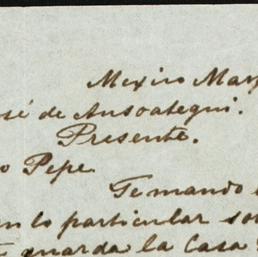 Mexico Mar
sé de Ansoategui.
Presente.
o Pepe.
Te mando
en lo particular so
guarda la Casa